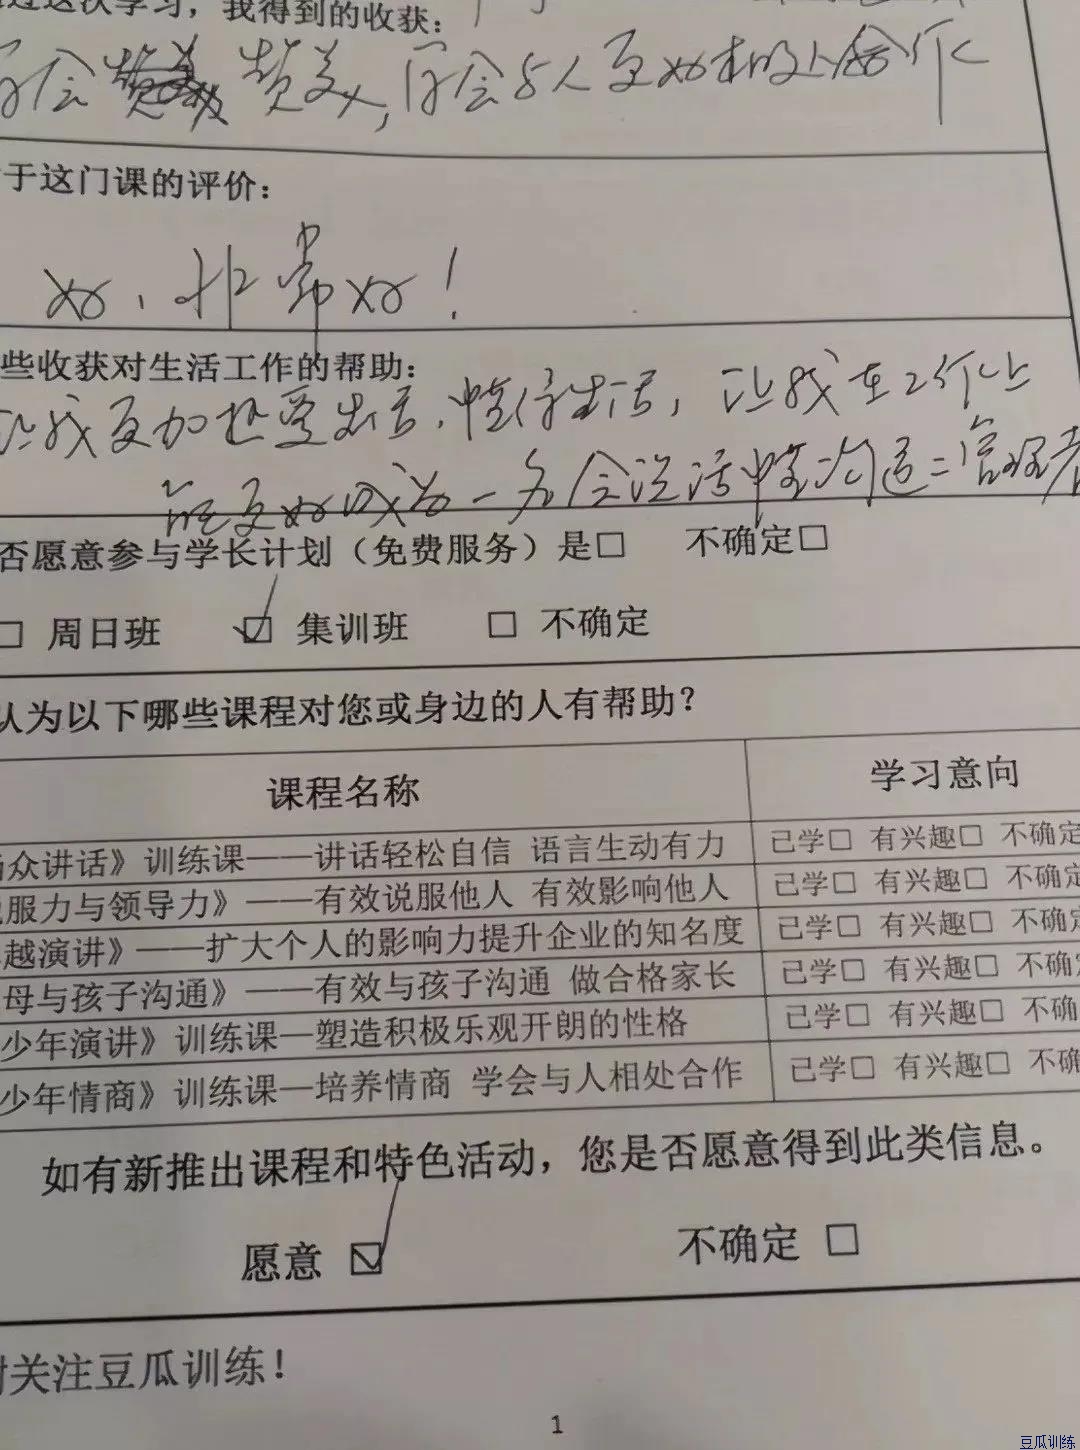 过这次学习，我得到的收获：
学会赞美，学会与人更好相处合作
于这门课的评价：
好、非常好！
些收获对生活工作的帮助：
让我更加热爱生活、懂得生活，让我在工作上
能更好成为一名会说话懂沟通的管理者
否愿意参与学长计划（免费服务）是□ 不确定□
□ 周日班 ☑ 集训班 □ 不确定
认为以下哪些课程对您或身边的人有帮助？
课程名称 学习意向
当众讲话》训练课——讲话轻松自信 语言生动有力 已学□ 有兴趣□ 不确定
说服力与领导力》——有效说服他人 有效影响他人 已学□ 有兴趣□ 不确定
越演讲》——扩大个人的影响力提升企业的知名度 已学□ 有兴趣□ 不确定
母与孩子沟通》——有效与孩子沟通 做合格家长 已学□ 有兴趣□ 不确定
少年演讲》训练课—塑造积极乐观开朗的性格 已学□ 有兴趣□ 不确
少年情商》训练课—培养情商 学会与人相处合作 已学□ 有兴趣□ 不确
如有新推出课程和特色活动，您是否愿意得到此类信息。
愿意 ☑ 不确定 □
谢关注豆瓜训练！
1
豆瓜训练